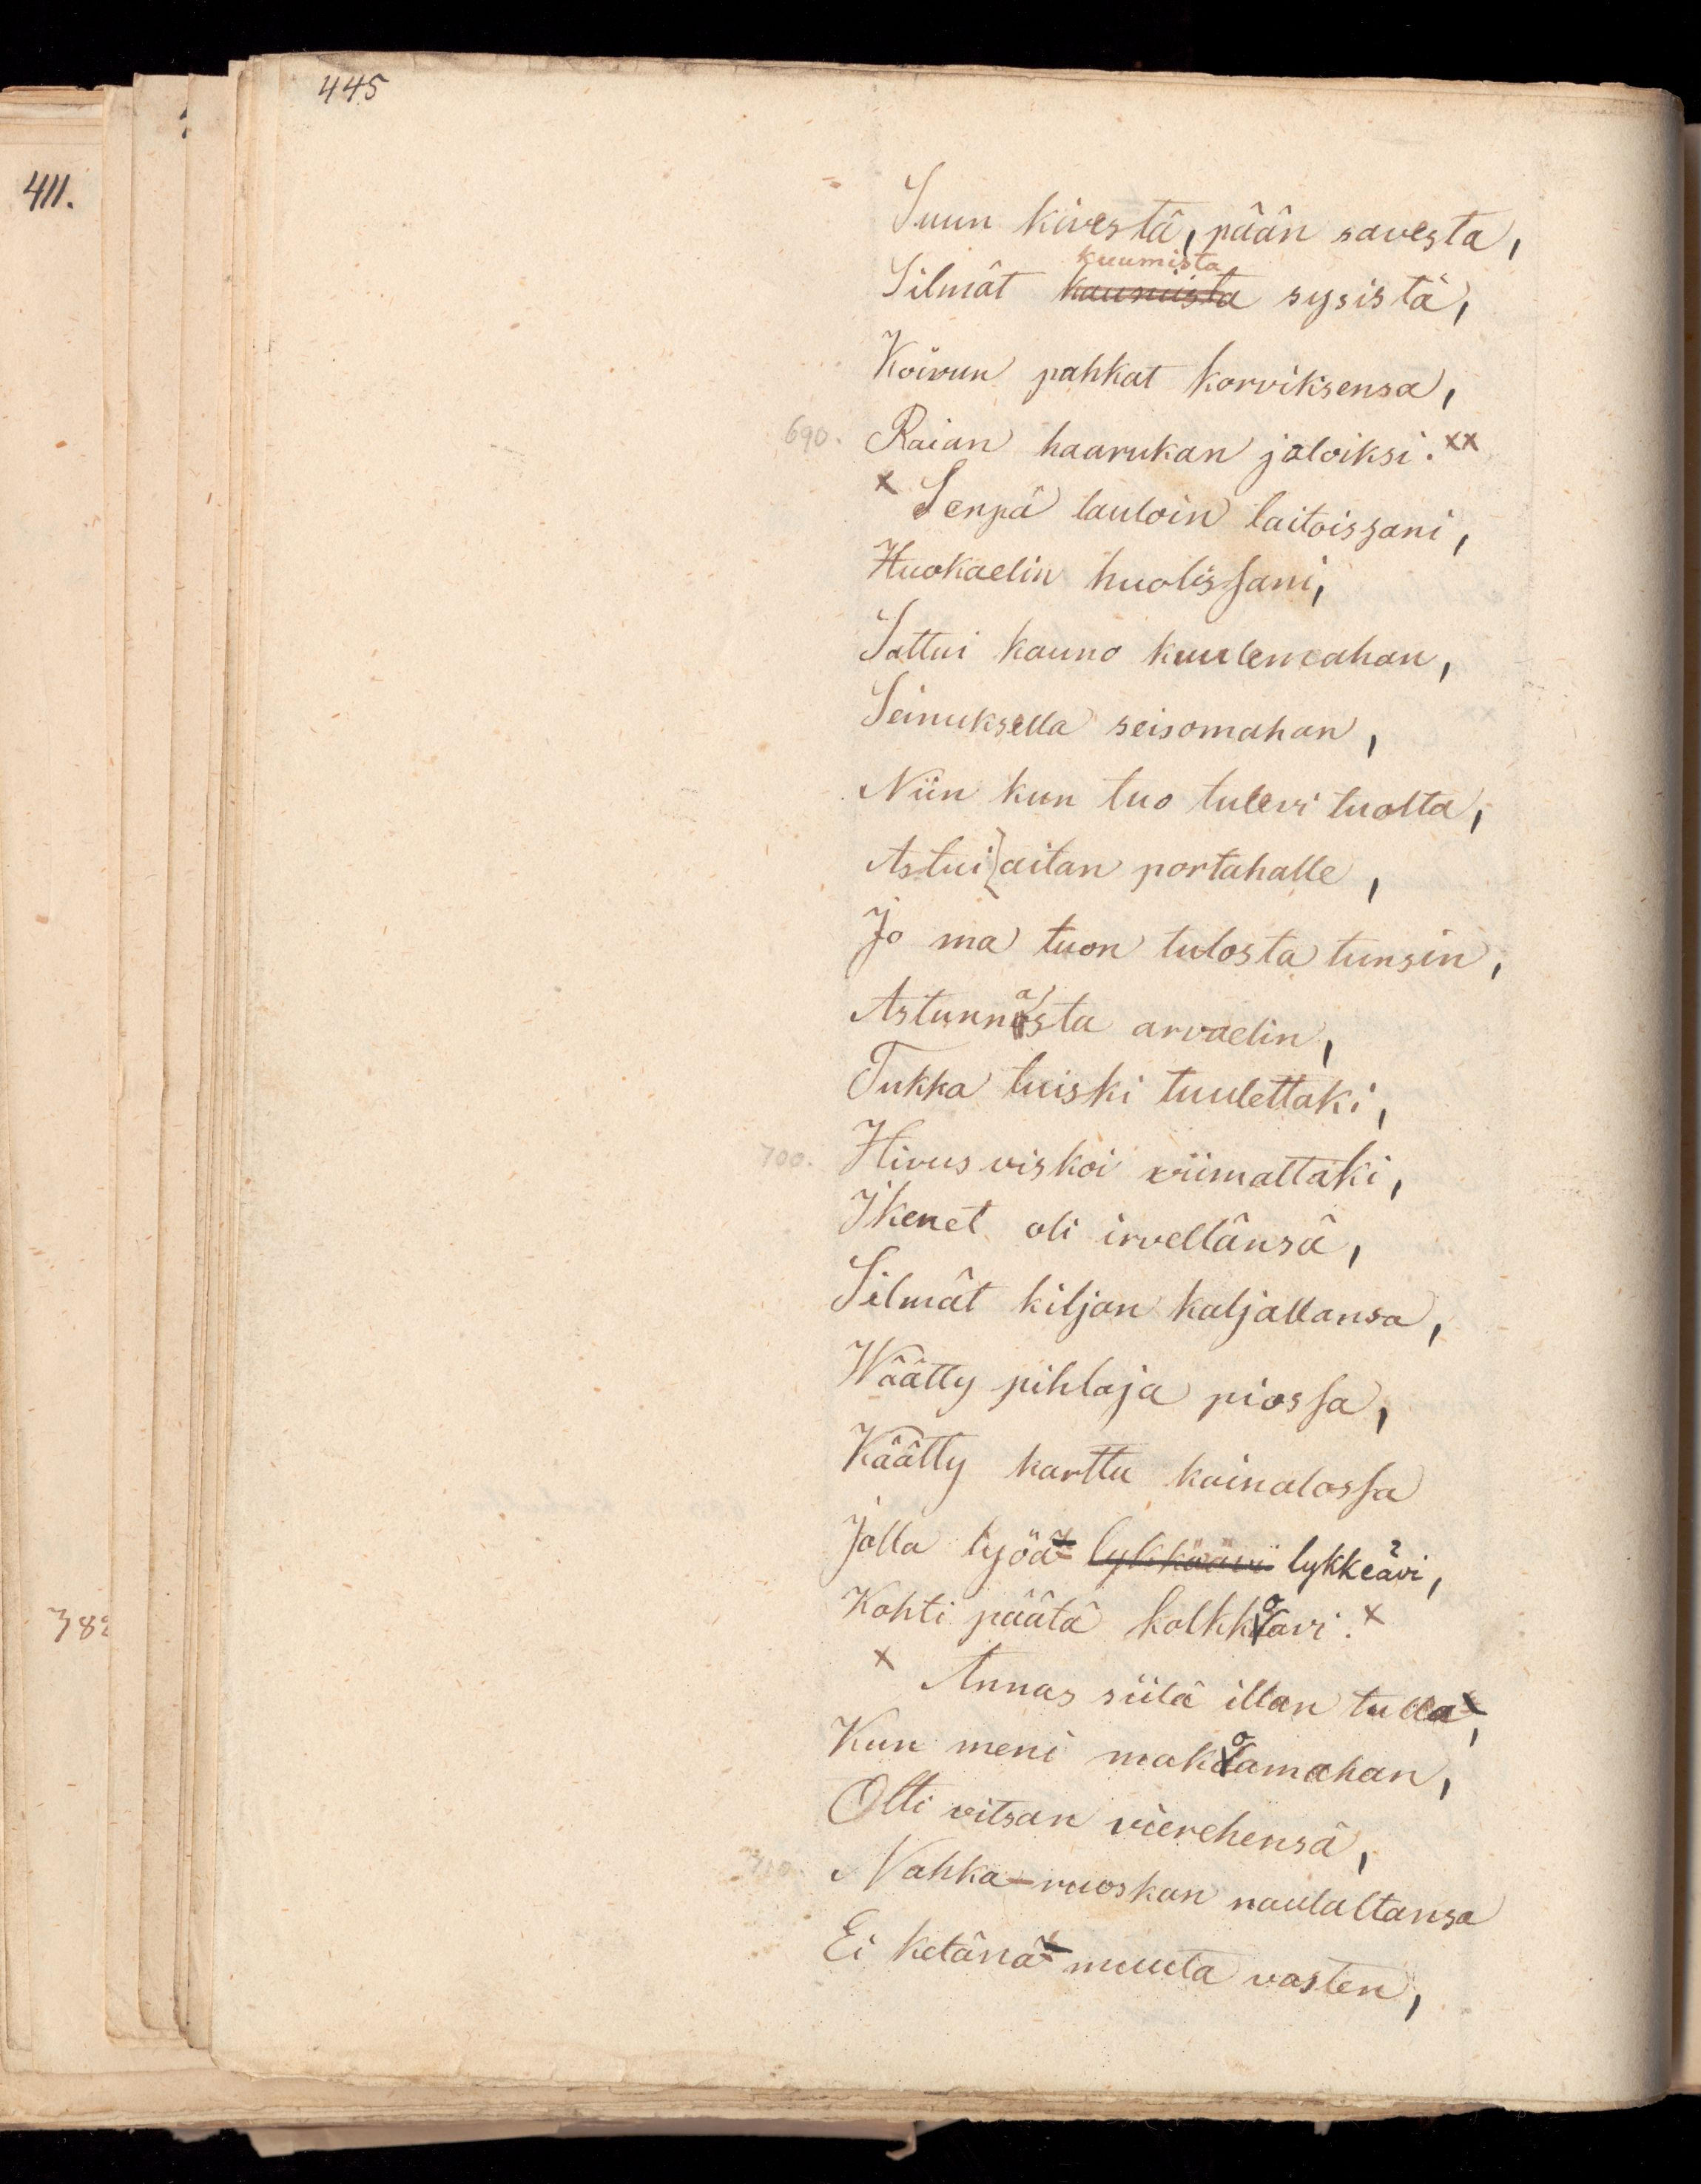 445
411.
Suun kivestä, pään savesta,
kuumista
Silmät kaunista sysistä,
Koivun pahkat korviksensa,
690. Raian haarukan jaloiksi. xx
x Senpä lauloin laitoissani,
Huokaelin huolissani,
Sattui kauno kuulemahan,
Seinuksella seisomahan,
Niin kun tuo tulevi tuolta,
Astui aitan portahalle,
Jo ma tuon tulosta tunsin,
Astunnasta arvaelin,
Tukka tuiski tuulettaki,
700. Hivus viskoi viimattaki,
Ikenet oli irvellänsä,
Silmät kiljan kaljallansa,
Wäätty pihlaja piossa,
Käätty karttu kainalossa
Jolla lyöä lykkäävi lykkeävi,
Kohti päätä kolkkoavi. x
x Annas siitä illan tulla,
Kun meni makoamahan,
Otti vitsan vierehensä,
710. Nahka-ruoskan naulaltansa
Ei ketänä muuta vasten,